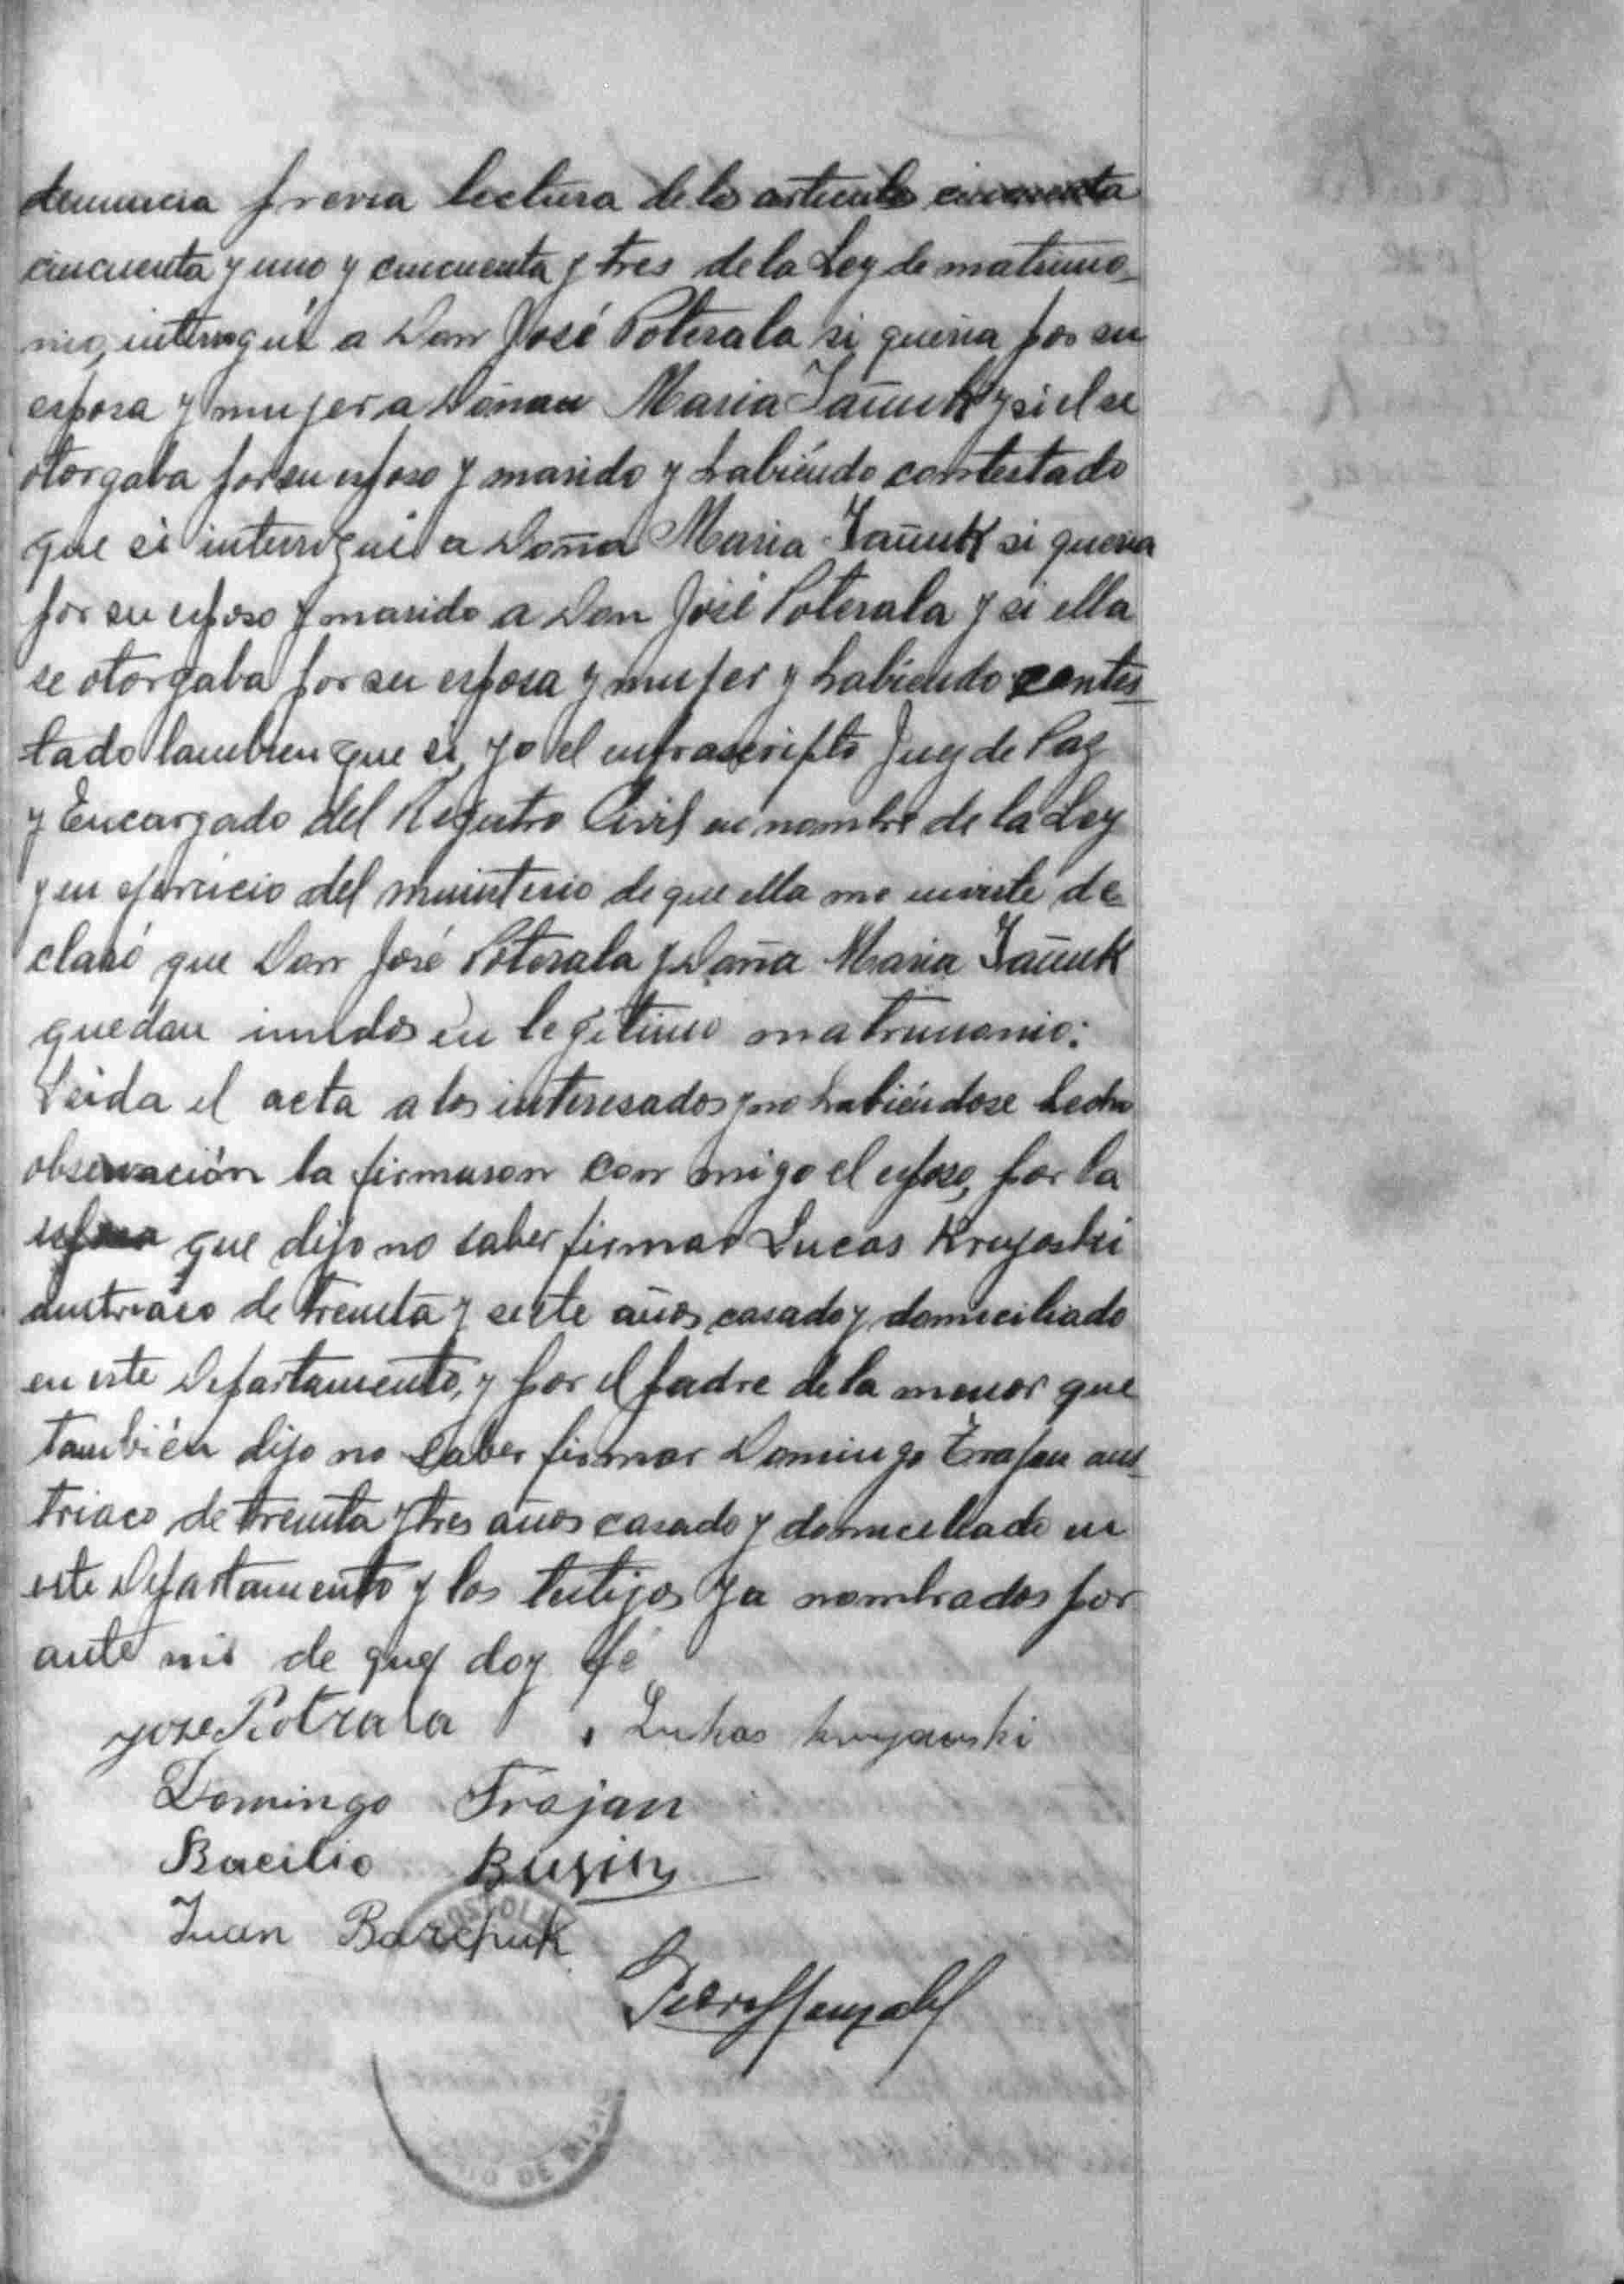 denuncia previa lectura de los articulos cincuenta
cincuenta y uno y cincuenta y tres de la Ley de matrimo-
nio, interrogué a Don José Poterala si queria por su
esposa y mujer a Doñan Maria Iañuk y si el se
otorgaba por su esposo y marido y habiéndo contestado
que si interrogué a Doña Maria Iañuk si queria
por su esposo y marido a Don José Poterala y si ella
se otorgaba por su esposa y mujer y habiendo contes-
tado tambien que si, yo el infrascripto Juez de Paz
y Encargado del Registro Civil en nombre de la Ley
y en ejercicio del ministerio de que ella me inviste de-
claró que Don José Poterala y Doña Maria Iañuk
quedan unidos en legitimo matrimonio:
Leida el acta a los interesados y no habiéndose hecho
observación la firmaron con migo el esposo, por la
esposa que dijo no saber firmar Lucas Krujoski
austriaco de treinta y siete años casado y domiciliado
en este Departamento, y por el padre de la menor que
también dijo no saber firmar Domingo Trajan aus-
triaco de treinta y tres años casado y domiciliado en
este Departamento y los testigos ya nombrados por
ante mi de que doy fé
Jose Potrala Lukas krujawski
Domingo Trojan
Bacilio Buzin
Juan Barchuk
Pedro Gonzalez